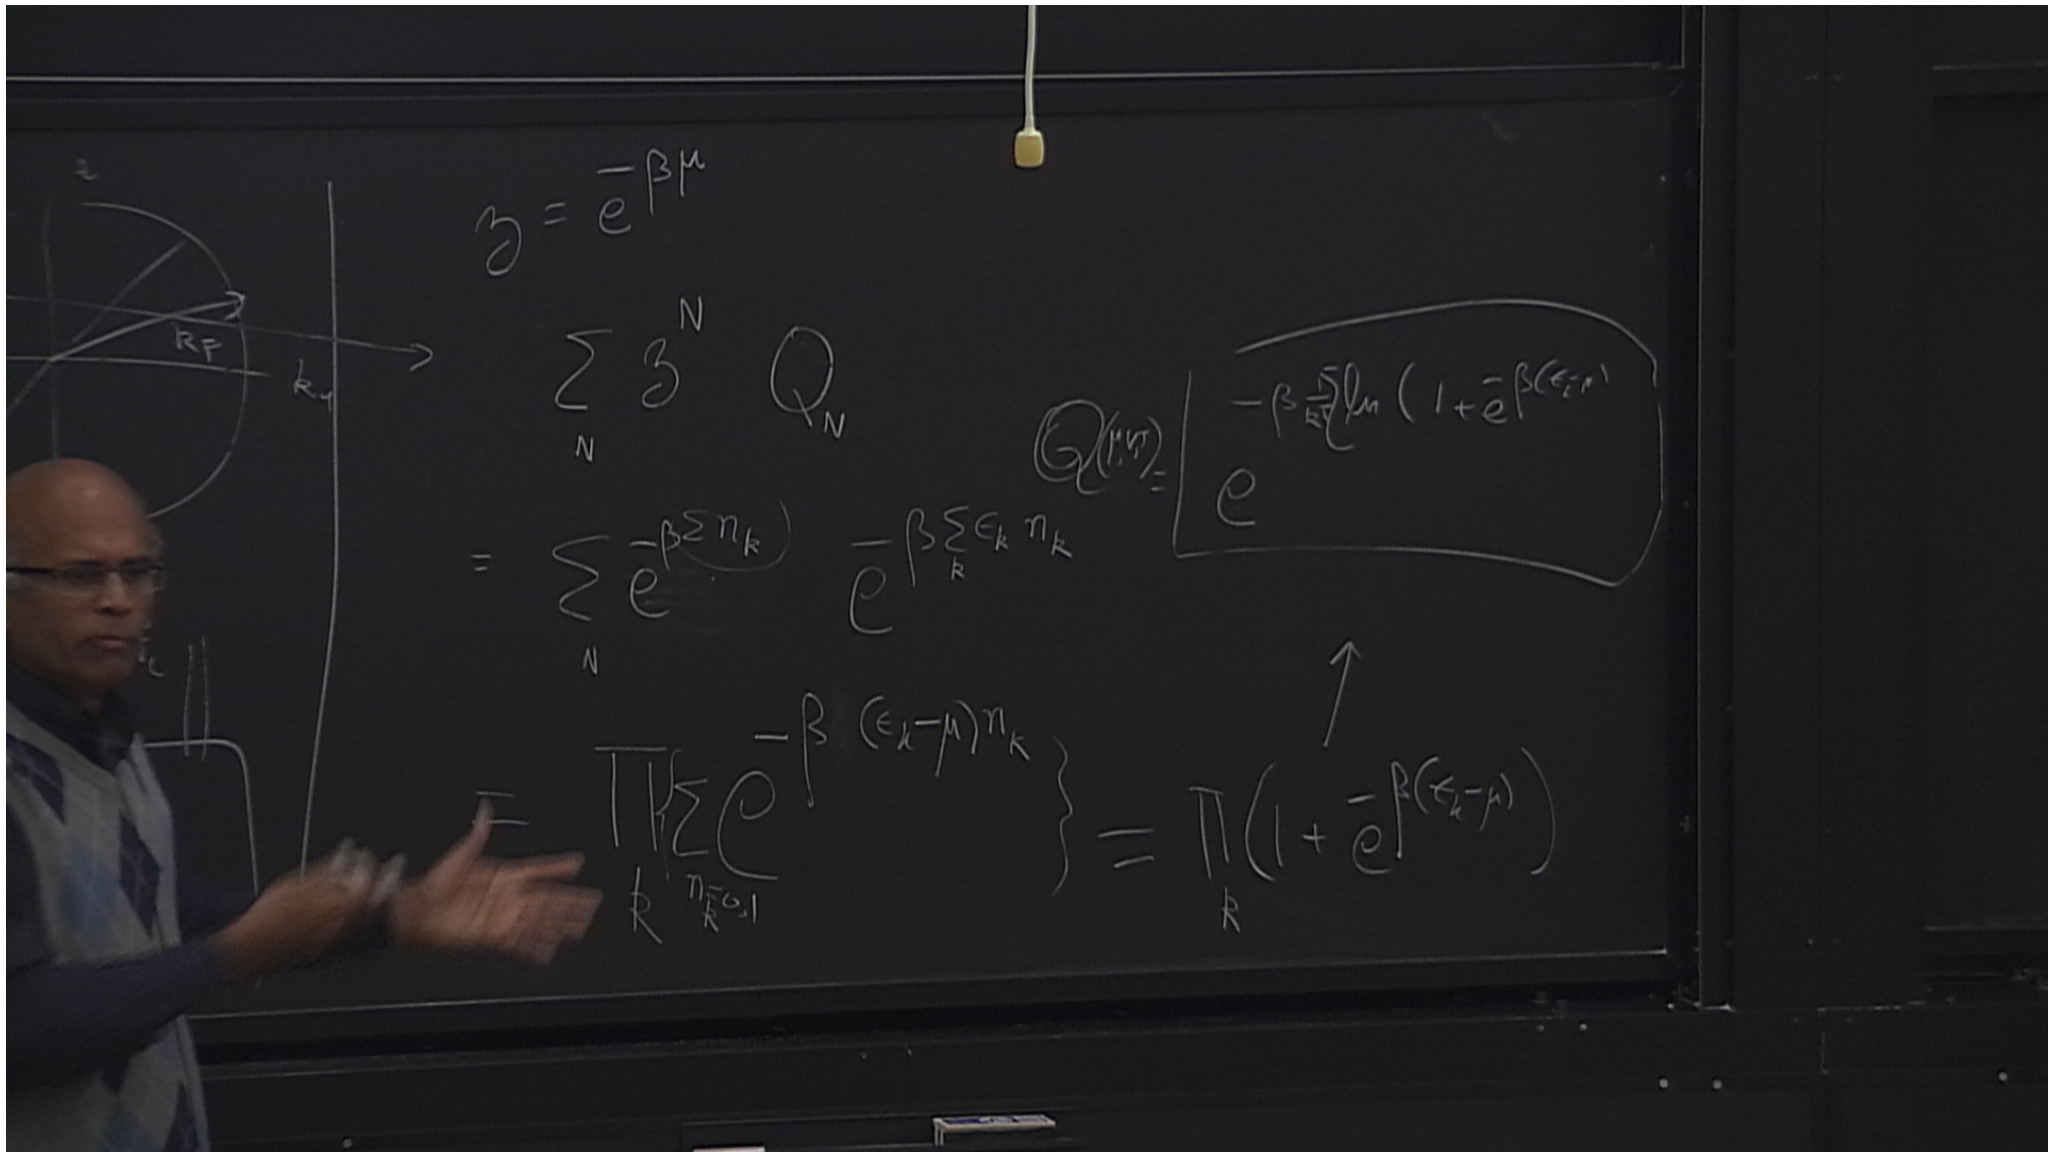 z = e^{-βμ}
∑_N z^N Q_N
= ∑_N e^{-β∑n_k} e^{-β∑_k ϵ_k n_k}
= ∏_k {∑_{n_k=0,1} e^{-β(ϵ_k-μ)n_k}} = ∏_k (1 + e^{-β(ϵ_k-μ)})
Q(μ,V,T) = e^{-β ∑_k ln(1+e^{-β(ϵ_k-μ)}
k_F
k_y